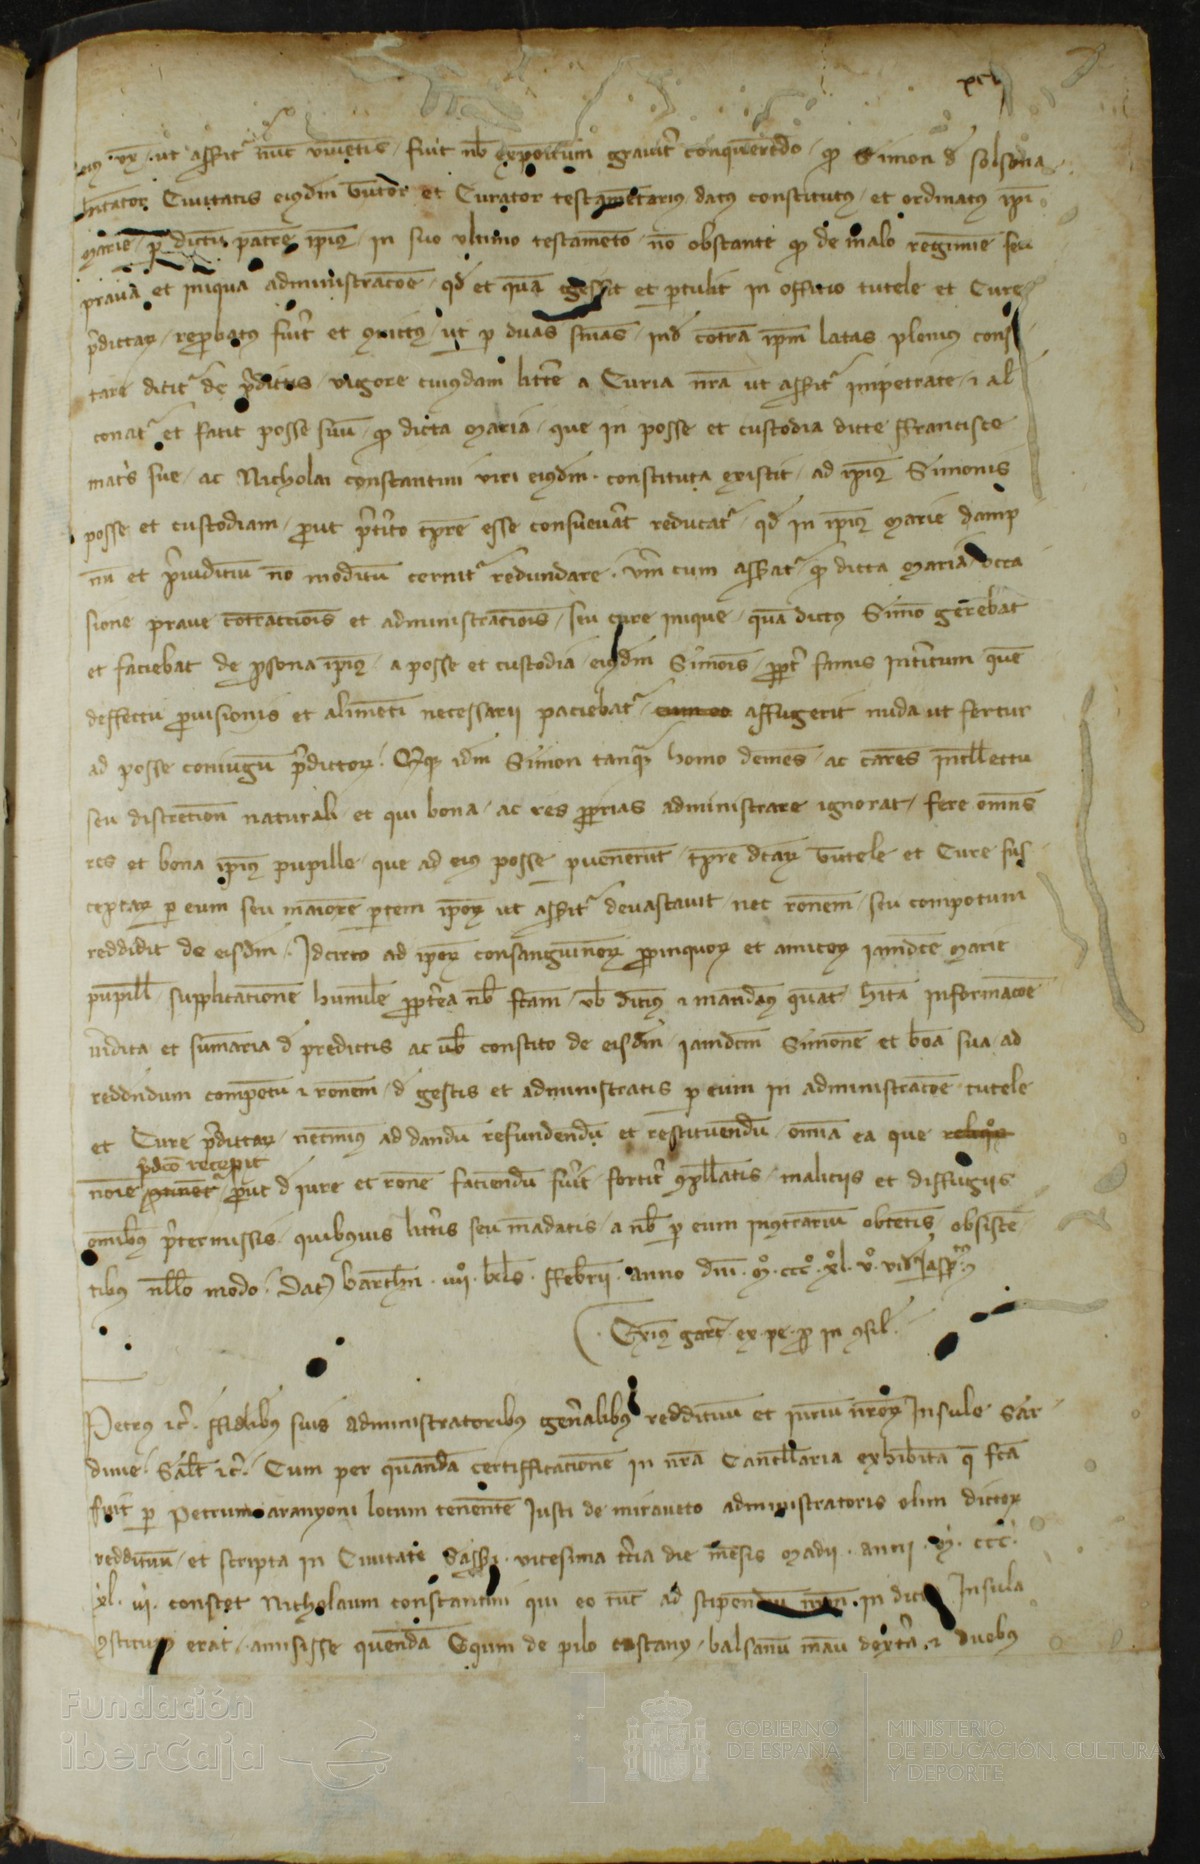 xcij
eius uxor ut asseritur nunc viventis fuit nobis expositum graviter conquerendo quod Simon de Solsona
habitator Civitatis eiusdem tutor et Curator testamentarius datus constitutus et ordinatus ipsi
Marie per dictum patrem ipsius in suo ultimo testamento non obstante quod de malo regimine seu
prava et iniqua administracione quod et quam gessit et pertulit in officio tutele et Cure
predictarum reprobatus fuerit et convictus ut per duas sententias inde contra ipsum latas plenius cons
tare dicitur de predictis vigore cuiusdam littere a Curia nostra ut asseritur impetrate
conatur et facit posse suum quod dicta Maria que in posse et custodia dicte Francisce
matris sue ac Nicholai Constantini viri eiusdem constituta existit ad ipsius Simonis
posse et custodiam prout preterito tempore esse consuevit reducatur quod in ipsius Marie damp
num et preiudicium non modicum cernitur redundare verum cum asseratur quod dicta Maria occa
sione prave contraccionis et administracionis seu cure inique quam dictus Simon gerebat
et faciebat de persona ipsius a posse et custodia eiusdem Simonis propter famis interitum quem
deffectu provisionis et alimenti necessarii paciebatur affugerit nuda ut fertur
ad posse coniugum predictorum Quodque idem Simon tanquam homo demens ac carens intellectu
seu discrecione naturali et qui bona ac res proprias administrare ignorat fere omnes
res et bona ipsius pupille que ad eius posse pervenerunt tempore dictarum tutele et Cure sus
ceptarum per eum seu maiorem partem ipsorum ut asseritur devastavit nec racionem seu compotum
reddidit de eisdem Idcirco ad ipsorum consanguineorum propinquorum et amicorum iamdicte Marie
pupille supplicacionem humilem propterea nobis factam vobis dicimus et mandamus quatenus habita informacione
verídica et summaria de predictis ac vobis constito de eisdem iamdictum Simonem et bona sua ad
reddendum compotum et racionem de gestis et administratis per eum in administracione tutele
et Cure predictarum necminus ad dandum refundendum et restituendum omnia ea que
predicto recepit
nomine prout de iure et racione faciendum fuerit fortiter compellatis maliciis et diffugiis
omnibus pretermissis quibusvis litteris seu mandatis a nobis per eum in contrarium obtentis obsisten
tibus nullo modo Datum Barchinone iiii kalendas Febroarii anno domini Mº CCCº XLº Vº
Eximinus Garcie ex pe pro in consil
Petrus etc. Fidelibus suis administratoribus generalibus reddituum et iurium nostrorum Insule Sar
dinie Salutem etc. Cum per quandam certifficacionem in nostra Cancellaria exhibitam que facta
fuit per Petrum Aranyoni locum tenentem Justi de Miraveto administratoris olim dictorum
reddituum et scripta in Civitate Sasseri vicesima tercia die mensis Madii anni Mi CCCi
XLi VIi constet Nicholaum Constantini qui eo tunc ad stipendium nostrum in dicta Insula
constitutus erat amisisse quendam Equum de pilo castany balsanum manu dextra et duobus